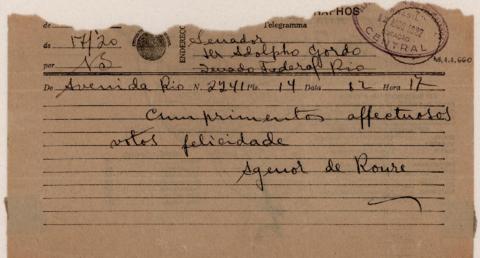 PHOS
de
Telegramma
de 17/20
por NB
ENDEREÇO
Senador
Dr Adolpho Gordo
Senado Federal Rio
CENTRAL
De Avenida Rio N. 2741 Pls. 14 Data 12 Hora 17
Cumprimentos affectuosos
votos felicidade
Agenor de Roure